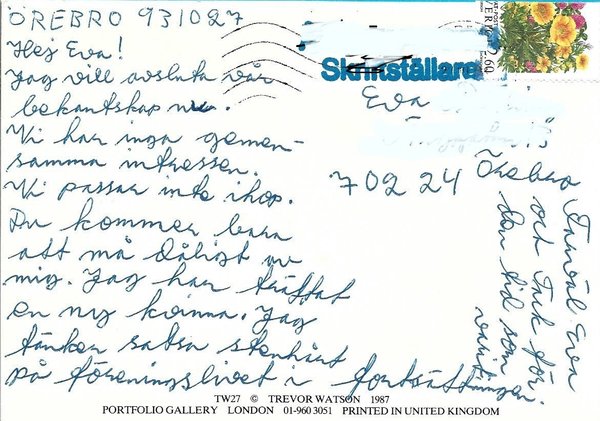 ÖREBRO 931027
Hej Eva!
Jag vill avsluta vår
bekantskap nu.
Vi har inga gemen-
samma intressen.
Vi passar inte ihop.
Du kommer bara
att må dåligt av
mig. Jag har träffat
en ny kvinna. Jag
tänker satsa stenhårt
på föreningslivet i fortsättningen.
Farväl Eva
och Tack för
den tid som
varit.
Skriftställare
Eva
702 24 Örebro
TW27 © TREVOR WATSON 1987
PORTFOLIO GALLERY LONDON 01-960 3051 PRINTED IN UNITED KINGDOM